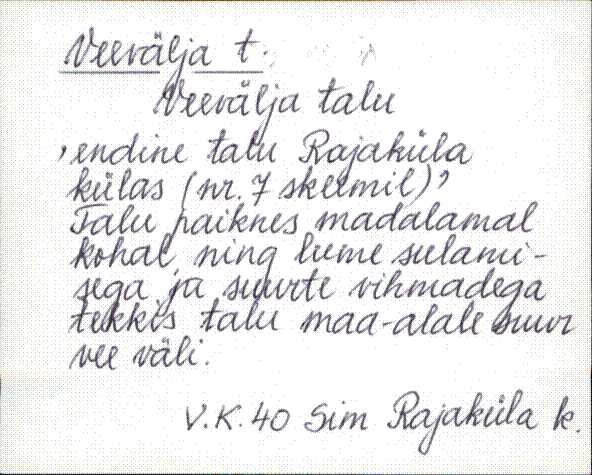 Veevälja t.
Veevälja talu
, endine talu Rajaküla
külas (nr. 7 skeemil)’
Talu paiknes madalamal
kohal ning lume sulami-
sega ja suurte vihmadega
tekkis talu maa-alale suur
vee väli.
V.K. 40 Sim Rajaküla k.